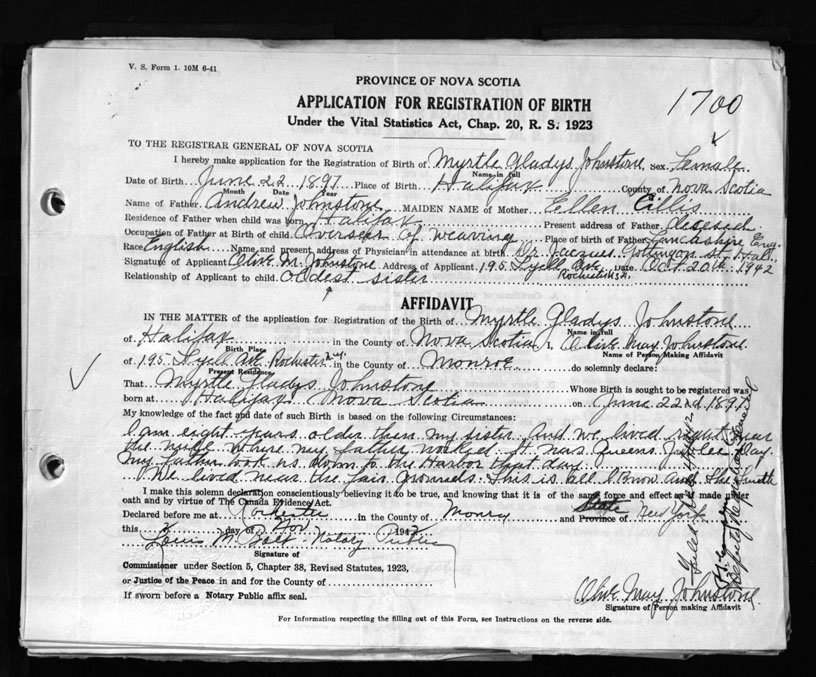 V. S. Form 1. 10M 6-41
PROVINCE OF NOVA SCOTIA
APPLICATION FOR REGISTRATION OF BIRTH
1700
Under the Vital Statistics Act, Chap. 20, R. S. 1923
TO THE REGISTRAR GENERAL OF NOVA SCOTIA
I hereby make application for the Registration of Birth of Myrtle Gladys Johnstone Sex Female
Name in full
Date of Birth June 22 1897 Place of Birth Halifax County of Nova Scotia
Month Date Year
Name of Father Andrew Johnstone MAIDEN NAME of Mother Ellen Eillis
Residence of Father when child was born Halifax Present address of Father deceased
Occupation of Father at Birth of child Overseer of weaving Place of birth of Father Lancashire Eng.
Race English Name and present address of Physician in attendance at birth Dr. Jacques Gottingon St. Hal.
Signature of Applicant Olive M. Johnstone Address of Applicant 195 Lyell Ave. Rochester N.Y. Date Oct 20th 1942
Relationship of Applicant to child oldest sister
AFFIDAVIT
IN THE MATTER of the application for Registration of the Birth of Myrtle Gladys Johnstone
Name in full
of Halifax in the County of Nova Scotia I, Olive May Johnstone
Birth Place Name of Person Making Affidavit
of 195 Lyell Ave Rochester N.Y. in the County of Monroe do solemnly declare:
Present Residence
That Myrtle Gladys Johnstone Whose Birth is sought to be registered was
born at Halifax Nova Scotia on June 22nd 1897
My knowledge of the fact and date of such Birth is based on the following Circumstances:
I am eight years older then my sister and we lived right near
the mill where my father worked it was Queens Jubilee Day.
my father took us down to the Harbor that day.
We lived near the fair grounds. This is all I know and the truth
I make this solemn declaration conscientiously believing it to be true, and knowing that it is of the same force and effect as if made under
oath and by virtue of The Canada Evidence Act.
Declared before me at Rochester in the County of Monroe and Province of State New York
this day of Nov 1942
Louis M. Notary Public
Signature of
Commissioner under Section 5, Chapter 38, Revised Statutes, 1923,
or Justice of the Peace in and for the County of
If sworn before a Notary Public affix seal.
Olive May Johnstone
Signature of Person making Affidavit
For Information respecting the filling out of this Form, see Instructions on the reverse side.
Deputy Registrar General